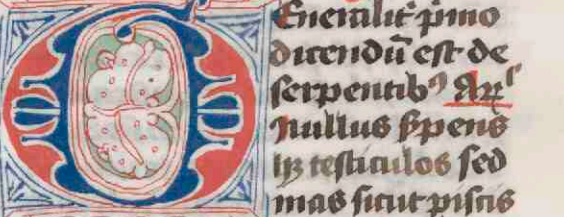 Eneralit̃ p̃mo
dicendũ est de
serpentibꝰ Arˡ
Nullus ẜpens
hꝫ testiculos sed
mas sicut piscis